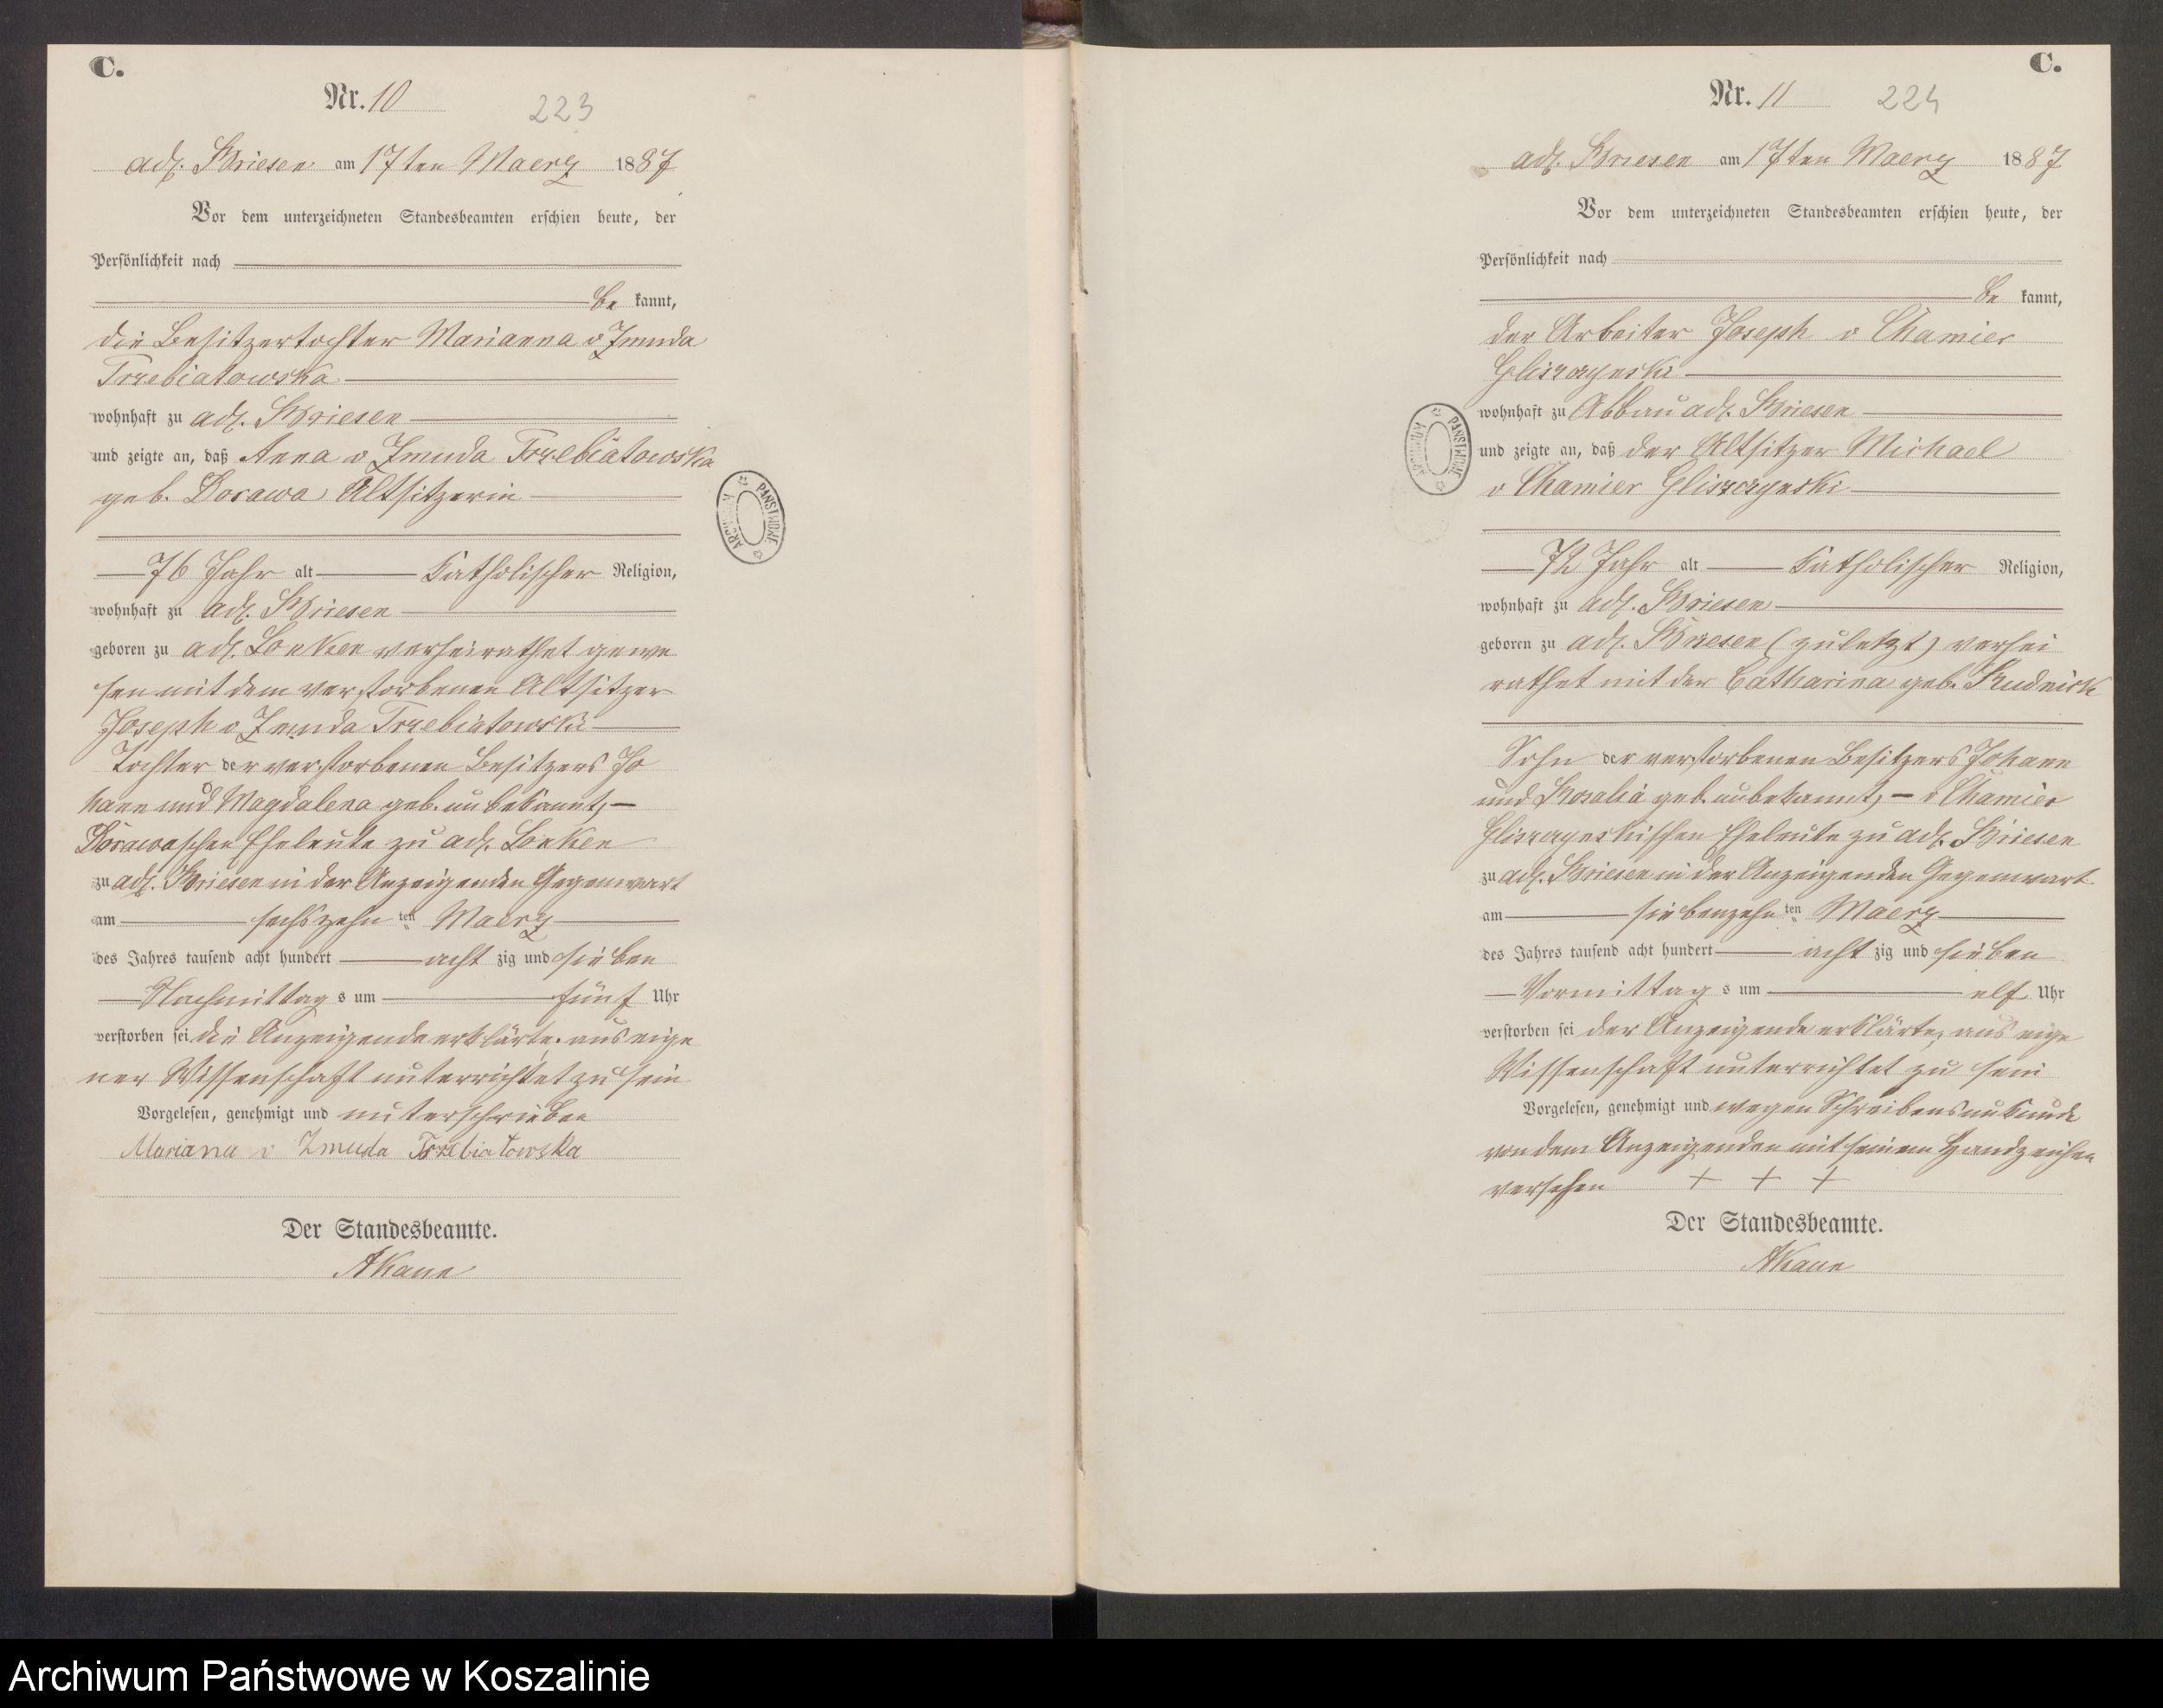 C.
Nr. 10
223
adl. Briesen am 17ten Maerz 1887
Vor dem unterzeichneten Standesbeamten erschien heute, der
Persönlichkeit nach
be kannt,
die Besitzertochter Marianna v Zmuda
Trzebiatowska
wohnhaft zu adl. Briesen
und zeigte an, daß Anna v Zmuda Trzebiatowska
geb. Dorawa, Altsitzerin
76 Jahr alt Katholischer Religion,
wohnhaft zu adl. Briesen
geboren zu adl. Lonken verheirathet gewe
sen mit dem verstorbenen Altsitzer
Joseph v Zmuda Trzebiatowski
Tochter der verstorbenen Besitzers Jo
hann und Magdalena geb. unbekannt, —
Dorawaschen Eheleute zu adl. Lonken
zu adl. Briesen in der Anzeigenden Gegenwart
am sechszehn ten Maerz
des Jahres tausend acht hundert acht zig und sieben
Nachmittag s um fünf Uhr
verstorben sei die Anzeigende erklärte, aus eige
ner Wissenschaft unterrichtet zu sein
Vorgelesen, genehmigt und unterschrieben
Mariana v Zmuda Trzebiatowska
Der Standesbeamte.
AKann
ARCHIWUM PAŃSTWOWE
C.
Nr. 11
224
adl. Briesen am 17ten Maerz 1887
Vor dem unterzeichneten Standesbeamten erschien heute, der
Persönlichkeit nach
be kannt,
der Arbeiter Joseph v Chamier
Gliszczynski
wohnhaft zu Abbau adl. Briesen
und zeigte an, daß der Altsitzer Michael
v Chamier Gliszczynski
72 Jahr alt Katholischer Religion,
wohnhaft zu adl. Briesen
geboren zu adl. Briesen (zuletzt) verhei
rathet mit der Catharina geb. Rudnick
Sohn der verstorbenen Besitzers Johann
und Rosalia geb. unbekannt, — v Chamier
Gliszczynskischen Eheleute zu adl. Briesen
zu adl. Briesen in der Anzeigenden Gegenwart
am siebenzehn ten Maerz
des Jahres tausend acht hundert acht zig und sieben
Vormittag s um elf Uhr
verstorben sei der Anzeigende erklärte, aus eige
Wissenschaft unterrichtet zu sein
Vorgelesen, genehmigt und wegen Schreibensunkunde
von dem Anzeigenden mit seinem Handzeichen
versehen + + +
Der Standesbeamte.
AKann
ARCHIWUM PAŃSTWOWE
Archiwum Państwowe w Koszalinie